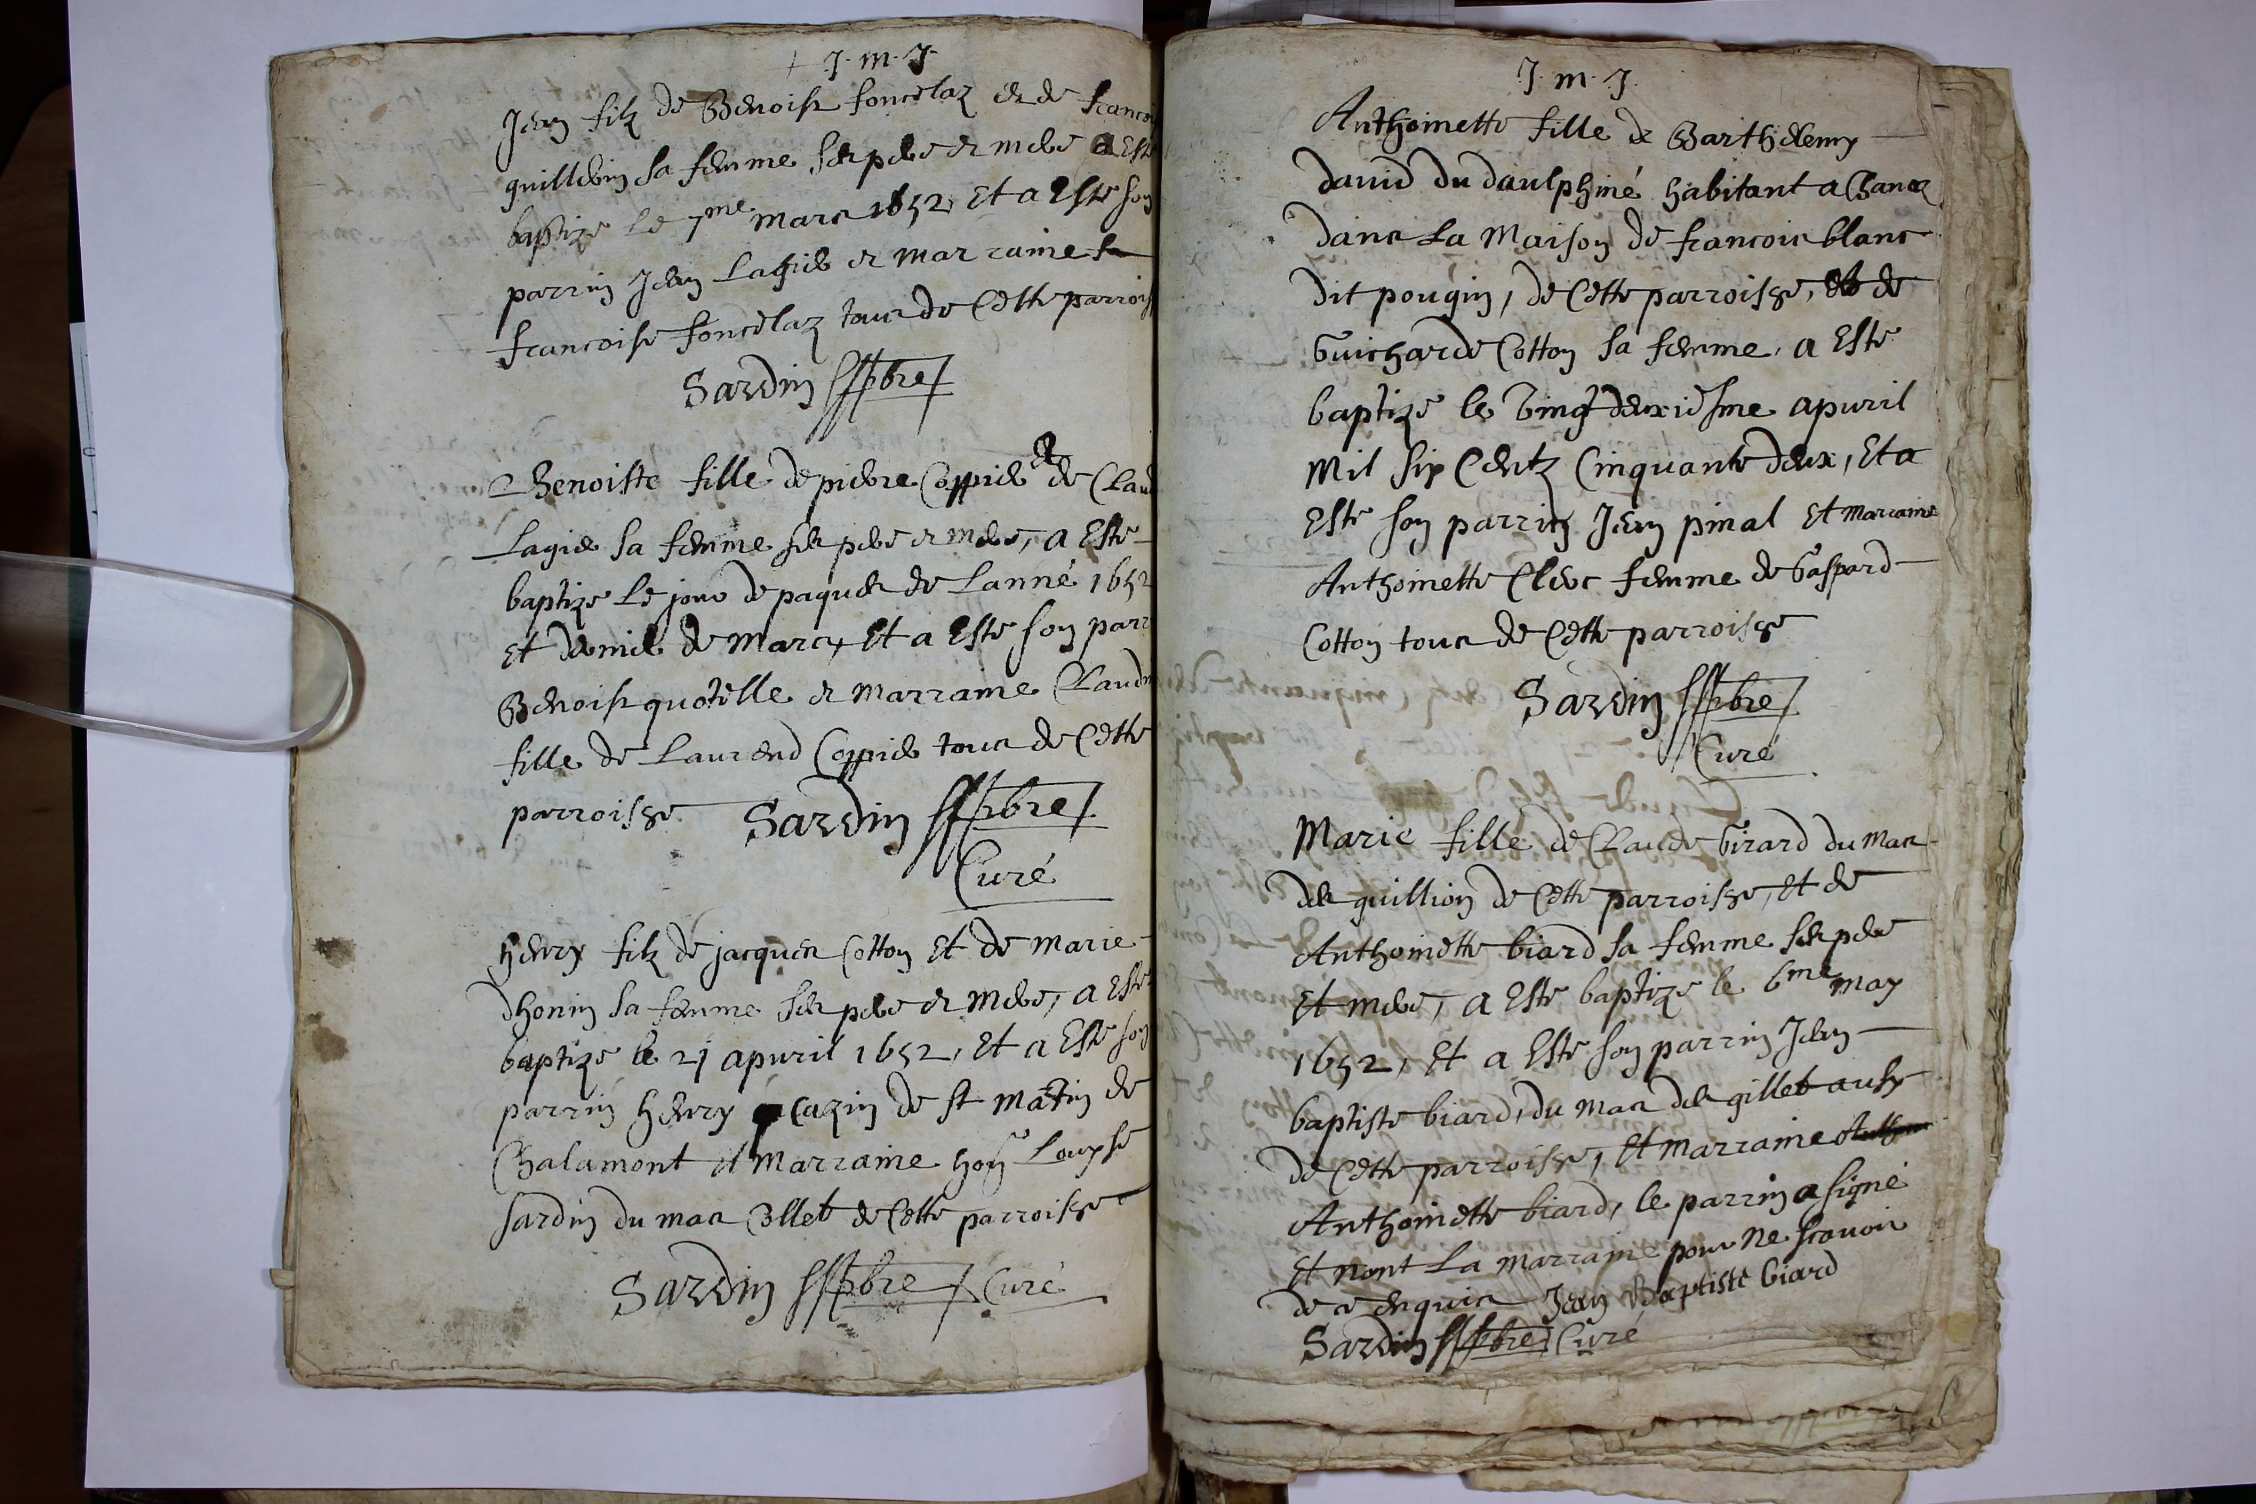 J. m. J.
Jean filz de Benoist foncelaz et de francoi
guillemin sa femme ses pere et mere a Esté
baptize le 7me mars 1652, Et a Esté son
parrin Jean Lagier et marraine
francoise foncelaz tous de Cette parroiss
Sardin pbre
Benoiste fille de pierre Coppier et de Claud
Lagier sa femme ses pere et mere, a Esté
baptize Le jour de paques de Lanné 1652
Et dernier de Mars, Et a Esté son parr
Benoist quotille et marrame Claudin
fille de Laurend Coppier tous de Cette
parroisse Sardin pbre
Curé
Henry filz de jacques Cotton Et de Marie
dhonin sa femme ses pere et mere, a Esté
baptize le 21 apuril 1652, Et a Esté son
parrin Henry cazin de st Martin de
Chalamont et Marraine hon Louyse
sardin du mas ollet de Cette parroisse
Sardin pbre Curé
J. m. J.
Anthoinette fille de Barthelemy
david du daulphiné habitant a Chanoz
dans La Maison de francois blanc
dit pougin, de Cette parroisse, et de
Guicharde Cotton sa femme, a Esté
baptize le Vingt deuxiesme apuril
Mil six Centz Cinquante deux, Et a
Esté son parrin Jean pinal Et Marraine
Anthoinette Clerc femme de Gaspard
Cotton tous de Cette parroisse
Sardin pbre
Curé
Marie fille de Claude Girard du Mas
des guillion de Cette parroisse, Et de
Anthoinette biard sa femme ses pere
Et mere, a Esté baptize le 6me may
1652, Et a Esté son parrin Jean
baptiste biard, du mas des gillet ausy
de Cette parroisse, Et Marraine
Anthoinette biard, le parrin a signé
Et nont La marraine pour ne scauoir
de ce enquis Jean Baptiste biard
Sardin pbre Curé